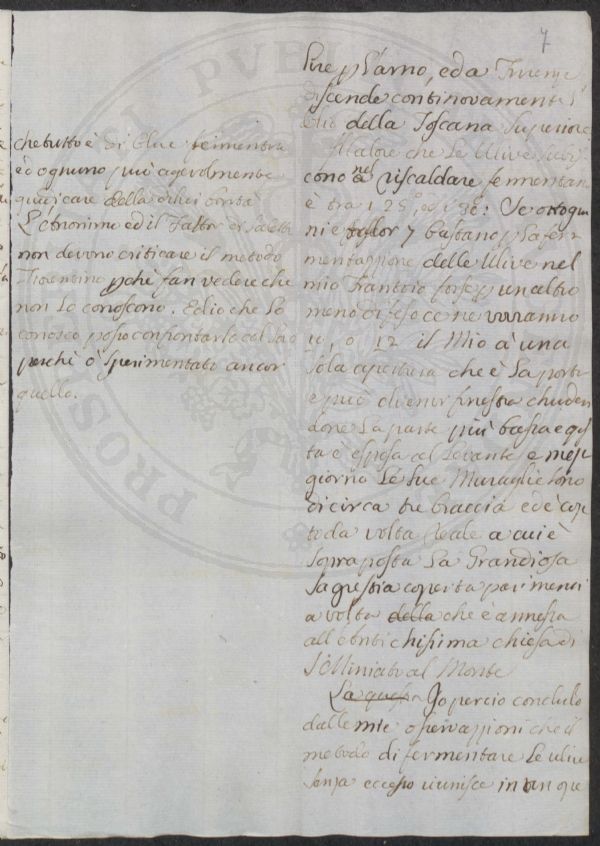 7
che tutto è di Ulive fermentra
ed ognuno può agevolmente
giudicare della di lei bontà
L'Anonimo ed il Fattor di
non devono criticare il metodo
Fiorentino pche fan vedere che
non lo conoscono. Ed io che lo
conosco posso confrontarlo col
perchè ò sperimentato ancor
quello.
p l'arno, ed a Firenze
discende continovamente l'
olio della Toscana Superiore
calore che le Ulive
cono nel riscaldare fermentan
è tra i 25, ed i 36: Se otto gior
ni e 7 bastano p la fer
mentazzione delle Ulive nel
mio Frantoio forse p un altro
meno difeso ce ne vorranno
10, o 12 il Mio à una
sola apertura che è la porta
e può divenir finestra chiuden
done la parte più bassa e qs
ta è esposta al Levante e mezzo
giorno le sue Muraglie sono
di circa tre braccia ed è cop
to da volta Reale a cui è
sopraposta la Grandiosa
Sagrestia coperta parimenti
a volta della che è annessa
all'antichissima chiesa di
S. Miniato al Monte
La Io perciò concludo
dalle mie osservazzioni che il
metodo di fermentare le ulive
senza eccesso riunisce in un que
PROS
PVBL